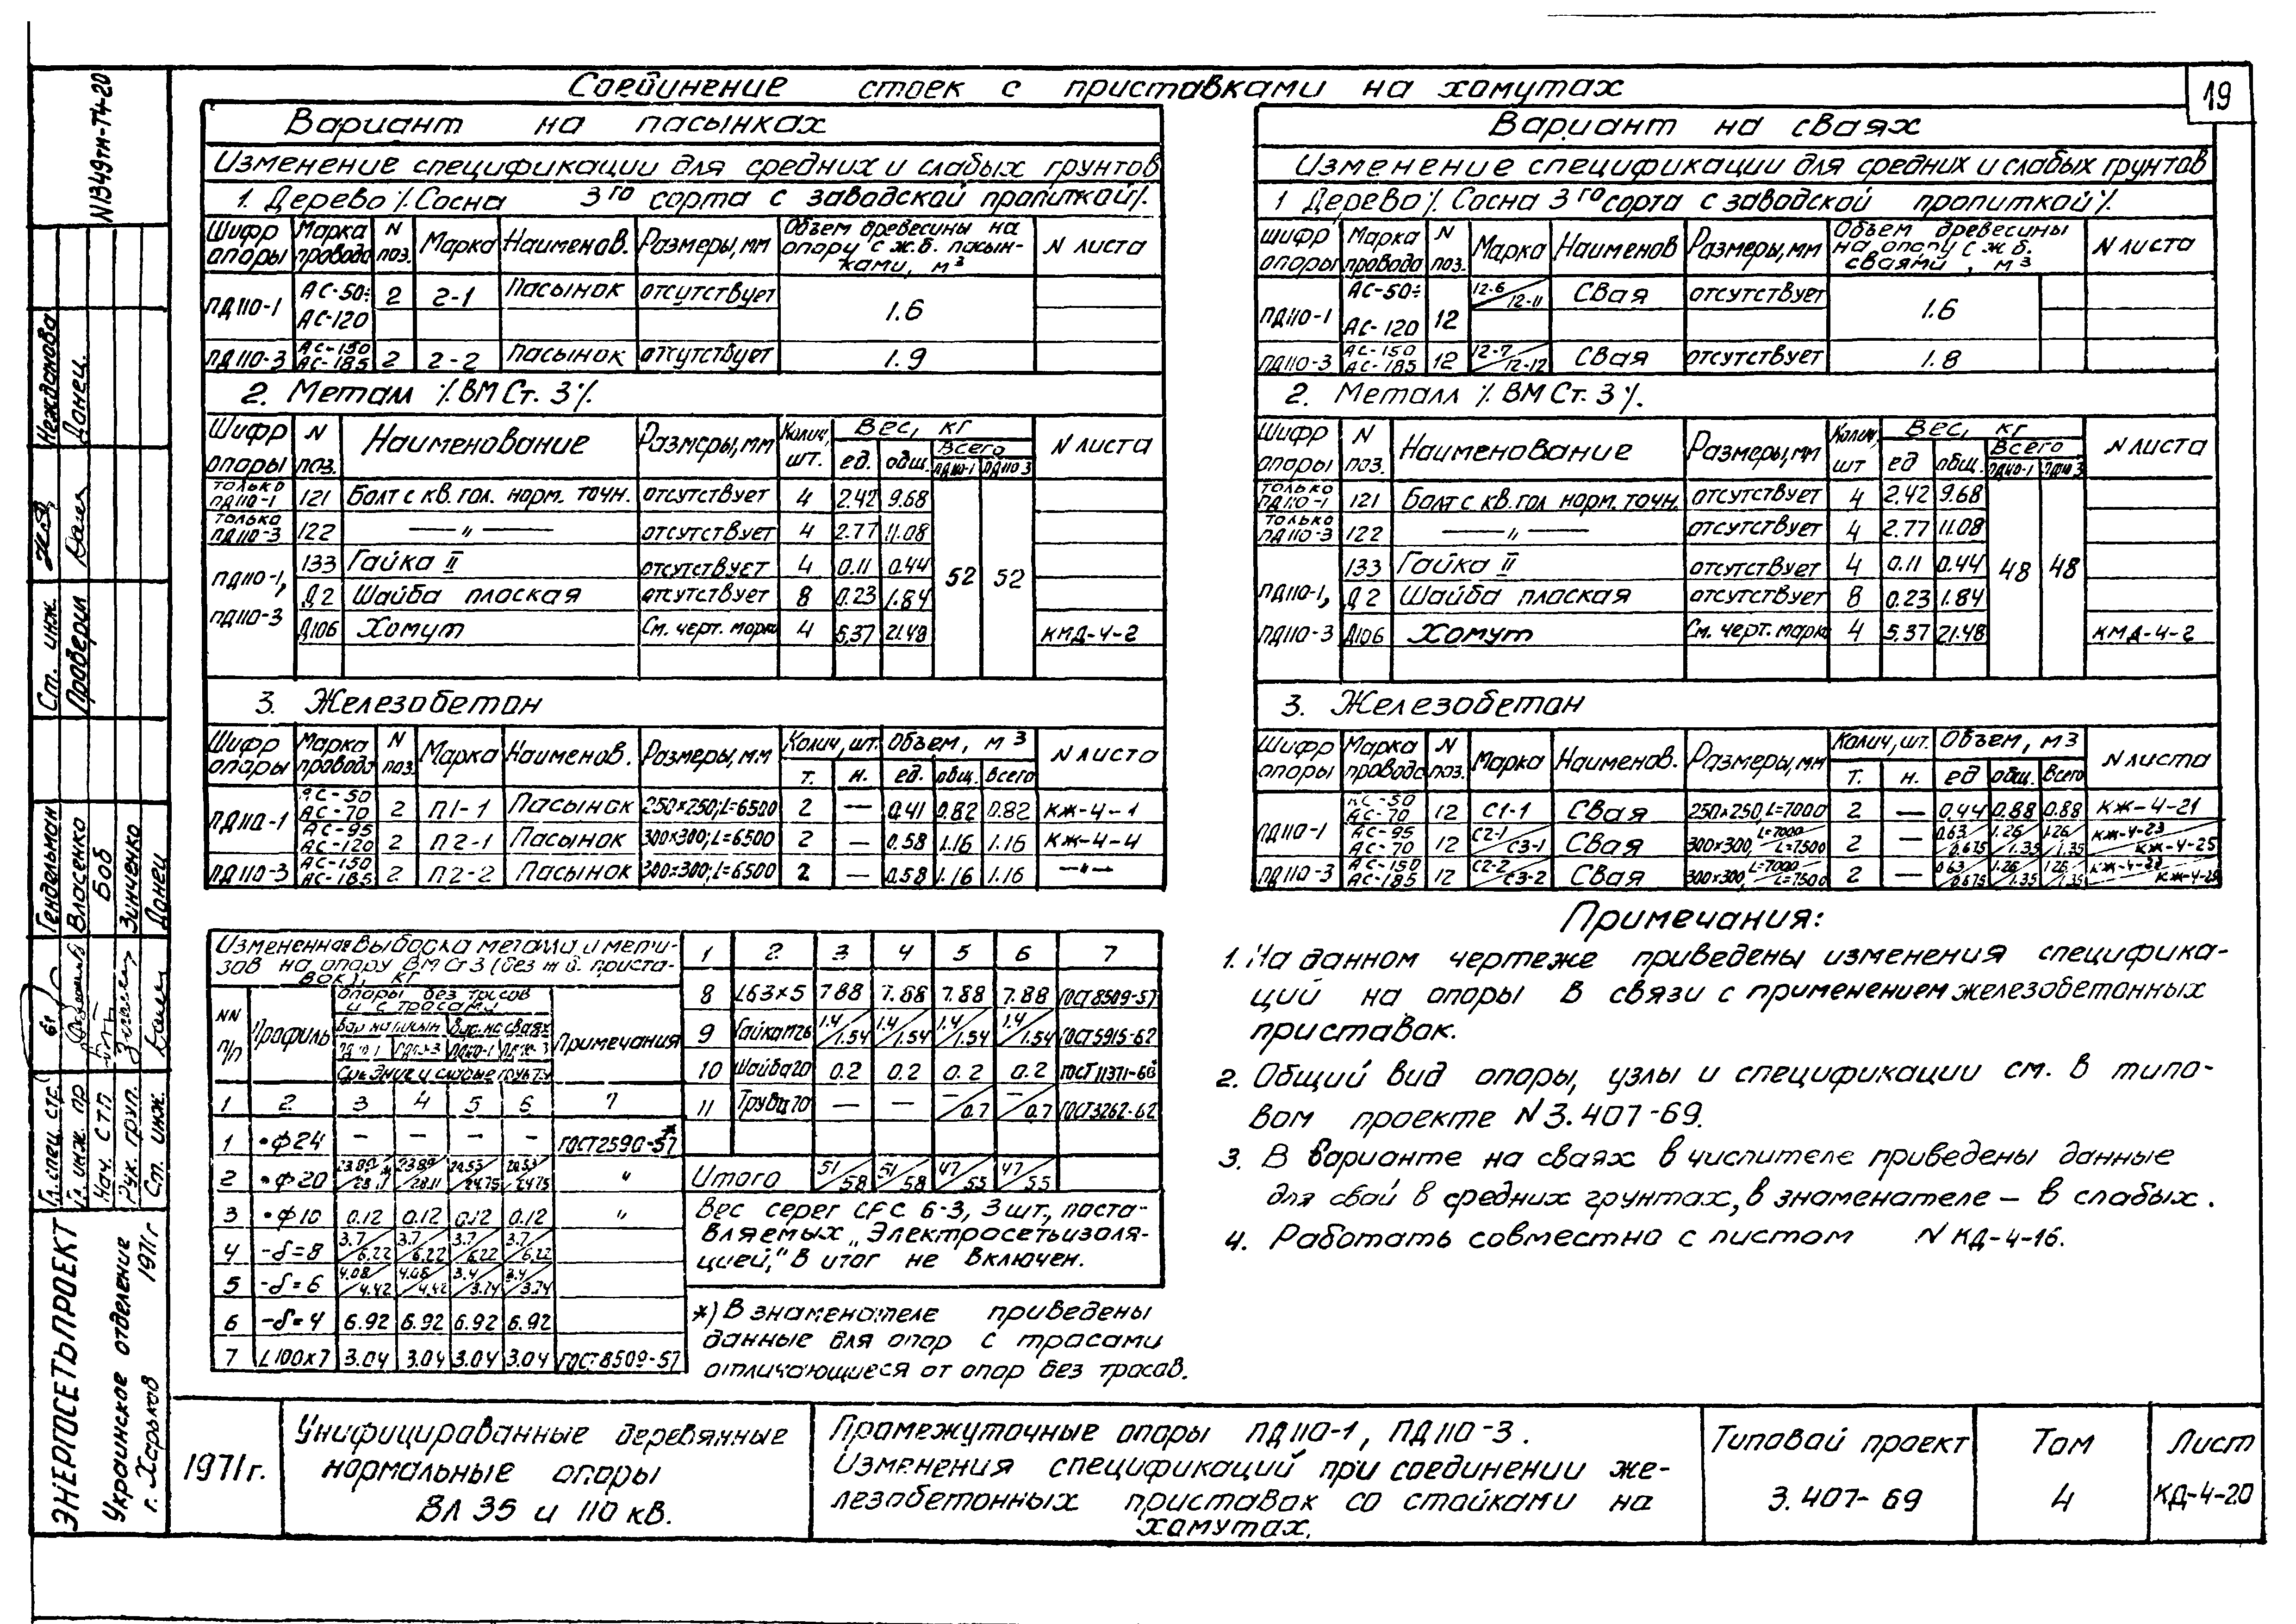 19
Соединение стоек с приставками на хомутах
Вариант на пасынках
Изменение спецификации для средних и слабых грунтов
1. Дерево /. Сосна 3го сорта с заводской пропиткой/.
Шифр опоры Марка провода N поз. Марка Наименов. Размеры, мм Объем древесины на опору с ж.б. пасынками, м³ N листа
ПД110-1 АС-50÷ АС-120 2 2-1 Пасынок отсутствует 1.6
ПД110-3 АС-150 АС-185 2 2-2 Пасынок отсутствует 1.9
2. Металл /. ВМ Ст. 3/.
Шифр опоры N поз. Наименование Размеры, мм Колич, шт. Вес, кг ед. общ. Всего ПД110-1 ПД110-3 N листа
только ПД110-1 121 Болт с кв. гол. норм. точн. отсутствует 4 2.42 9.68
только ПД110-3 122 — " — отсутствует 4 2.77 11.08
ПД110-1, ПД110-3 133 Гайка II отсутствует 4 0.11 0.44 52 52
Д2 Шайба плоская отсутствует 8 0.23 1.84
Д106 Хомут См. черт. марки 4 5.37 21.48 КМД-4-2
3. Железобетон
Шифр опоры Марка провода N поз. Марка Наименов. Размеры, мм Колич, шт. т. н. Объем, м³ ед. общ. Всего N листа
ПД110-1 АС-50 АС-70 2 П1-1 Пасынок 250×250; L=6500 2 — 0.41 0.82 0.82 КЖ-4-1
АС-95 АС-120 2 П2-1 Пасынок 300×300; L=6500 2 — 0.58 1.16 1.16 КЖ-4-4
ПД110-3 АС-150 АС-185 2 П2-2 Пасынок 300×300; L=6500 2 — 0.58 1.16 1.16 — " —
Вариант на сваях
Изменение спецификации для средних и слабых грунтов
1 Дерево /. Сосна 3го сорта с заводской пропиткой /.
Шифр опоры Марка провода N поз. Марка Наименов Размеры, мм Объем древесины на опору с ж б. сваями, м³ N листа
ПД110-1 АС-50÷ АС-120 12 12-6/12-11 Свая отсутствует 1.6
ПД110-3 АС-150 АС-185 12 12-7/12-12 Свая отсутствует 1.8
2. Металл /. ВМ Ст. 3 /.
Шифр опоры N поз. Наименование Размеры, мм Колич, шт Вес, кг ед общ. Всего ПД110-1 ПД110 3 N листа
только ПД110-1 121 Болт с кв. гол норм. точн. отсутствует 4 2.42 9.68
только ПД110-3 122 — " — отсутствует 4 2.77 11.08
ПД110-1, ПД110-3 133 Гайка II отсутствует 4 0.11 0.44 48 48
Д2 Шайба плоская отсутствует 8 0.23 1.84
Д106 Хомут См. черт. марки 4 5.37 21.48 КМД-4-2
3. Железобетон
Шифр опоры Марка провода N поз. Марка Наименов. Размеры, мм Колич, шт. т. н. Объем, м3 ед общ. Всего N листа
ПД110-1 АС-50 АС-70 12 С1-1 Свая 250×250, L=7000 2 — 0.44 0.88 0.88 КЖ-4-21
АС-95 АС-70 12 С2-1/С3-1 Свая 300×300, L=7000/L=7500 2 — 0.63/0.675 1.26/1.35 1.26/1.35 КЖ-4-23/КЖ-4-25
ПД110-3 АС-150 АС-185 12 С2-2/С3-2 Свая 300×300, L=7000/L=7500 2 — 0.63/0.675 1.26/1.35 1.26/1.35
Измененная выборка металла и метизов на опору ВМ Ст 3 (без ж б. приставок), кг
NN п/п Профиль опоры без тросов и с тросами Вар на пасын Вар. на сваях ПД110-1 ПД110-3 ПД110-1 ПД110-3 Средние и слабые грунты Примечания
1 2 3 4 5 6 7
1 • Ф24 — — — — ГОСТ 2590-57 *
2 • Ф20 23.89/28.11 23.89/28.11 20.53/24.75 20.53/24.75 "
3 • Ф10 0.12 0.12 0.12 0.12 "
4 -δ=8 3.7/6.22 3.7/6.22 3.7/6.22 3.7/6.22
5 -δ=6 4.08/4.42 4.08/4.42 3.4/3.74 3.4/3.74
6 -δ=4 6.92 6.92 6.92 6.92
7 L100×7 3.04 3.04 3.04 3.04 ГОСТ 8509-57
1 2 3 4 5 6 7
8 L63×5 7.88 7.88 7.88 7.88 ГОСТ 8509-57
9 Гайка М20 1.4/1.54 1.4/1.54 1.4/1.54 1.4/1.54 ГОСТ 5915-62
10 Шайба 20 0.2 0.2 0.2 0.2 ГОСТ 11371-68
11 Труба 70 — — -/0.7 -/0.7 ГОСТ 3262-62
Итого 51/58 51/58 47/55 47/55
Вес серег СРС 6-3, 3 шт., поста-
вляемых „Электросетьизоля-
цией," в итог не включен.
*) В знаменателе приведены
данные для опор с тросами
отличающиеся от опор без тросов.
Примечания:
1. На данном чертеже приведены изменения специфика-
ций на опоры в связи с применением железобетонных
приставок.
2. Общий вид опоры, узлы и спецификации см. в типо-
вом проекте N 3.407-69.
3. В варианте на сваях в числителе приведены данные
для свай в средних грунтах, в знаменателе – в слабых.
4. Работать совместно с листом N КД-4-16.
1971г.
Унифицированные деревянные
нормальные опоры
ВЛ 35 и 110 кв.
Промежуточные опоры ПД110-1, ПД110-3.
Изменения спецификаций при соединении же-
лезобетонных приставок со стойками на
хомутах.
Типовой проект
3.407-69
Том
4
Лист
КД-4-20
N1349тм-Т4-20
Ст. инж. Нежданова
Проверил Донец
Гл. спец. стр. Гендельман
Гл. инж. пр Власенко
Нач. СТП Боб
Рук. груп. Зинченко
Ст. инж. Донец
ЭНЕРГОСЕТЬПРОЕКТ
Украинское отделение
г. Харьков 1971г